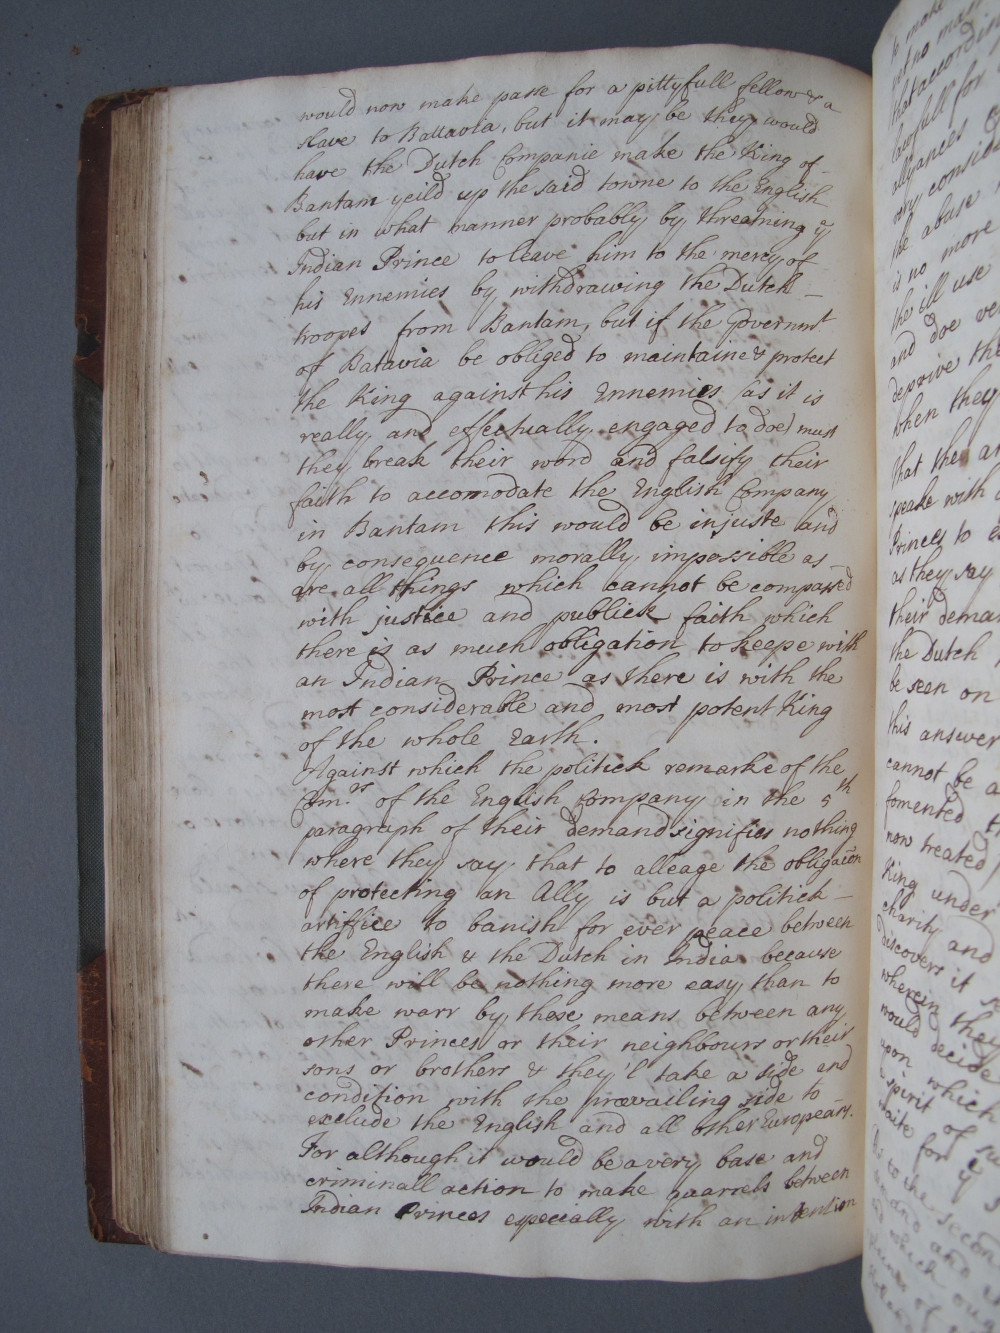 would now make passe for a pittyfull fellow & a
slave to Battavia, but it may be they would
have the Dutch Companie make the King of
Bantam yeild up the said towne to the English
but in what manner probably by threatning ye
Indian Prince to leave him to the mercy of
his Ennemies by withdrawing the Dutch
troopes from Bantam, but if the Governmt
of Batavia be obliged to maintaine & protect
the King against his Ennemies (as it is
really and effectually engaged to doe) must
they break their word and falsify their
faith to accomodate the English Company
in Bantam this would be injuste and
by consequence morally impossible as
are all things which cannot be compassed
with justice and publick faith which
there is as much obligation to keepe with
an Indian Prince as there is with the
most considerable and most potent King
of the whole Earth.
Against which the politick remarke of the
Comrs of the English Company in the 5th
paragraph of their demand signifies nothing
where they say that to alleage the obligacon
of protecting an Ally is but a politick
artifice to banish for ever peace between
the English & the Dutch in India because
there will be nothing more easy than to
make warr by these means between any
other Princes or their neighbours or their
sons or brothers & they'l take a side and
condition with the prevailing side to
exclude the English and all other Europeans.
For although it would be a very base and
criminall action to make quarrels between
Indian Princes especially with an intention
to make
yet no man
that accordin
lawfull for
allyances
very consid
the abuse
is no more
the ill use
and doe ve
deprive the
when they
That the an
speake with
Princes to
as they say
their deman
the Dutch
be seen on
this answer
cannot be a
fomented
now treated
King under
charity and
discovers it
wherein they
would decide
upon which
a spirit of
waite for ye
As to the secon